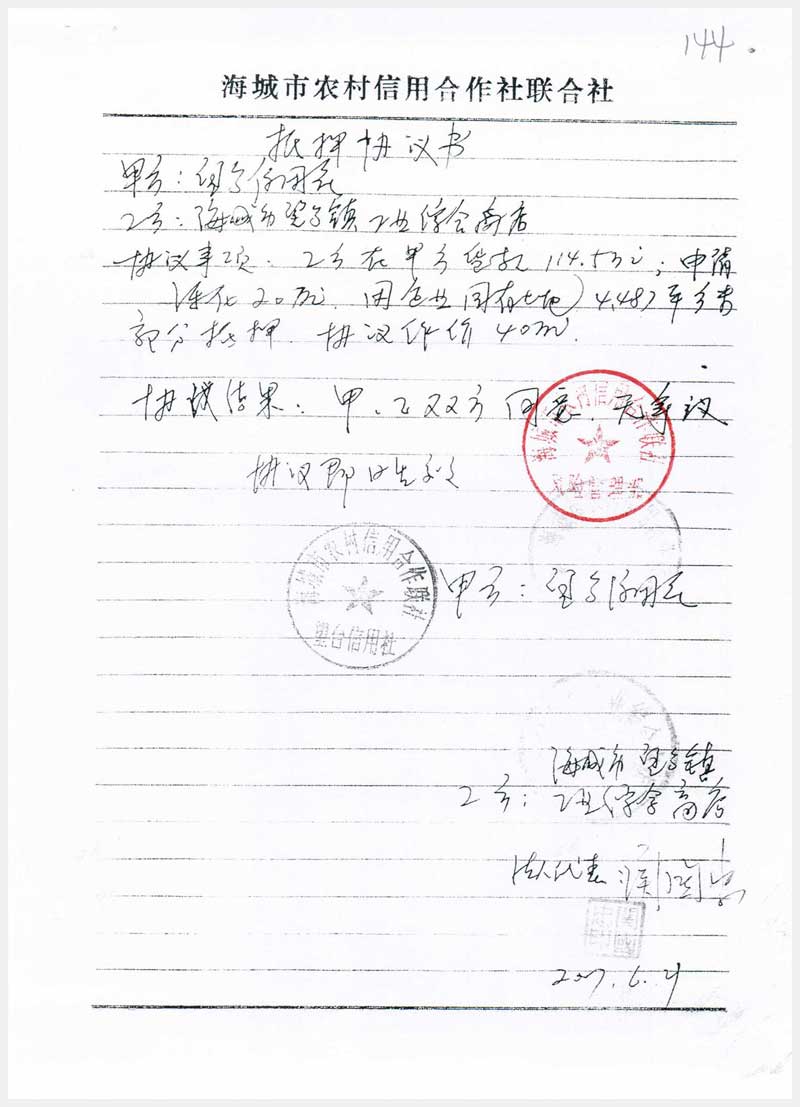 144
海城市农村信用合作社联合社
抵押协议书
甲方：望台信用社
乙方：海城市望台镇工业综合商店
协议事项：乙方在甲方贷款114.5万元；申请
转化20万元，用企业国有土地4.487平方
部分抵押，协议作价40万元。
协议结果：甲、乙双方同意，无争议
协议即日生效
海城市农村信用合作联社
海城市农村信用合作联社
望台信用社
甲方：望台信用社
海城市望台镇
乙方：工业综合商店
法人代表
2007.6.21